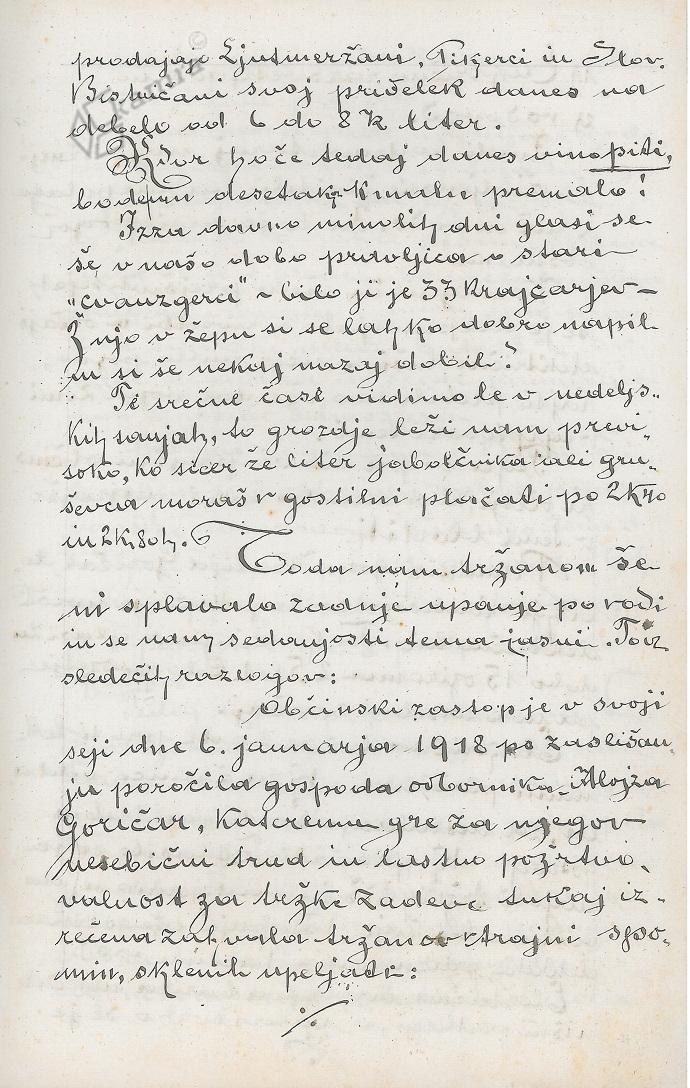 prodajajo Ljutmeržani, Pikerci in Slov.
Bistričani svoj pridelek danes na
debelo od 6 do 8 K liter.
Kdor hoče tedaj danes vino piti,
bodemu desetak kmalu premalo!
Izza davno minolih dni glasi se
še v našo dobo pravljica o stari
"cvanzgerci" - bilo ji je 33 krajcarjev -
Ž njo v žepu si se lahko dobro napil
in si še nekaj nazaj dobil?
Te srečne čase vidimo le v nedeljs„
kih sanjah, to grozdje leži nam previ„
soko, ko sicer že liter jabolčnika ali gru„
ševca moraš v gostilni plačati po 2 K 40
in 2 K 80 h.
Toda nam tržanom še
ni splavalo zadnje upanje po vodi
in se nam sedanjosti temna jasni. To iz
sledečih razlogov:
Občinski zastop je v svoji
seji dne 6. januarja 1918 po zaslišan„
ju poročila gospoda odbornika Alojza
Goričar, kateremu gre za njegov
nesebični trud in lastno požrtvo„
valnost za tržke zadeve tukaj iz-
rečena zahvala tržanov v trajni spo„
min, sklenil upeljati:
./.